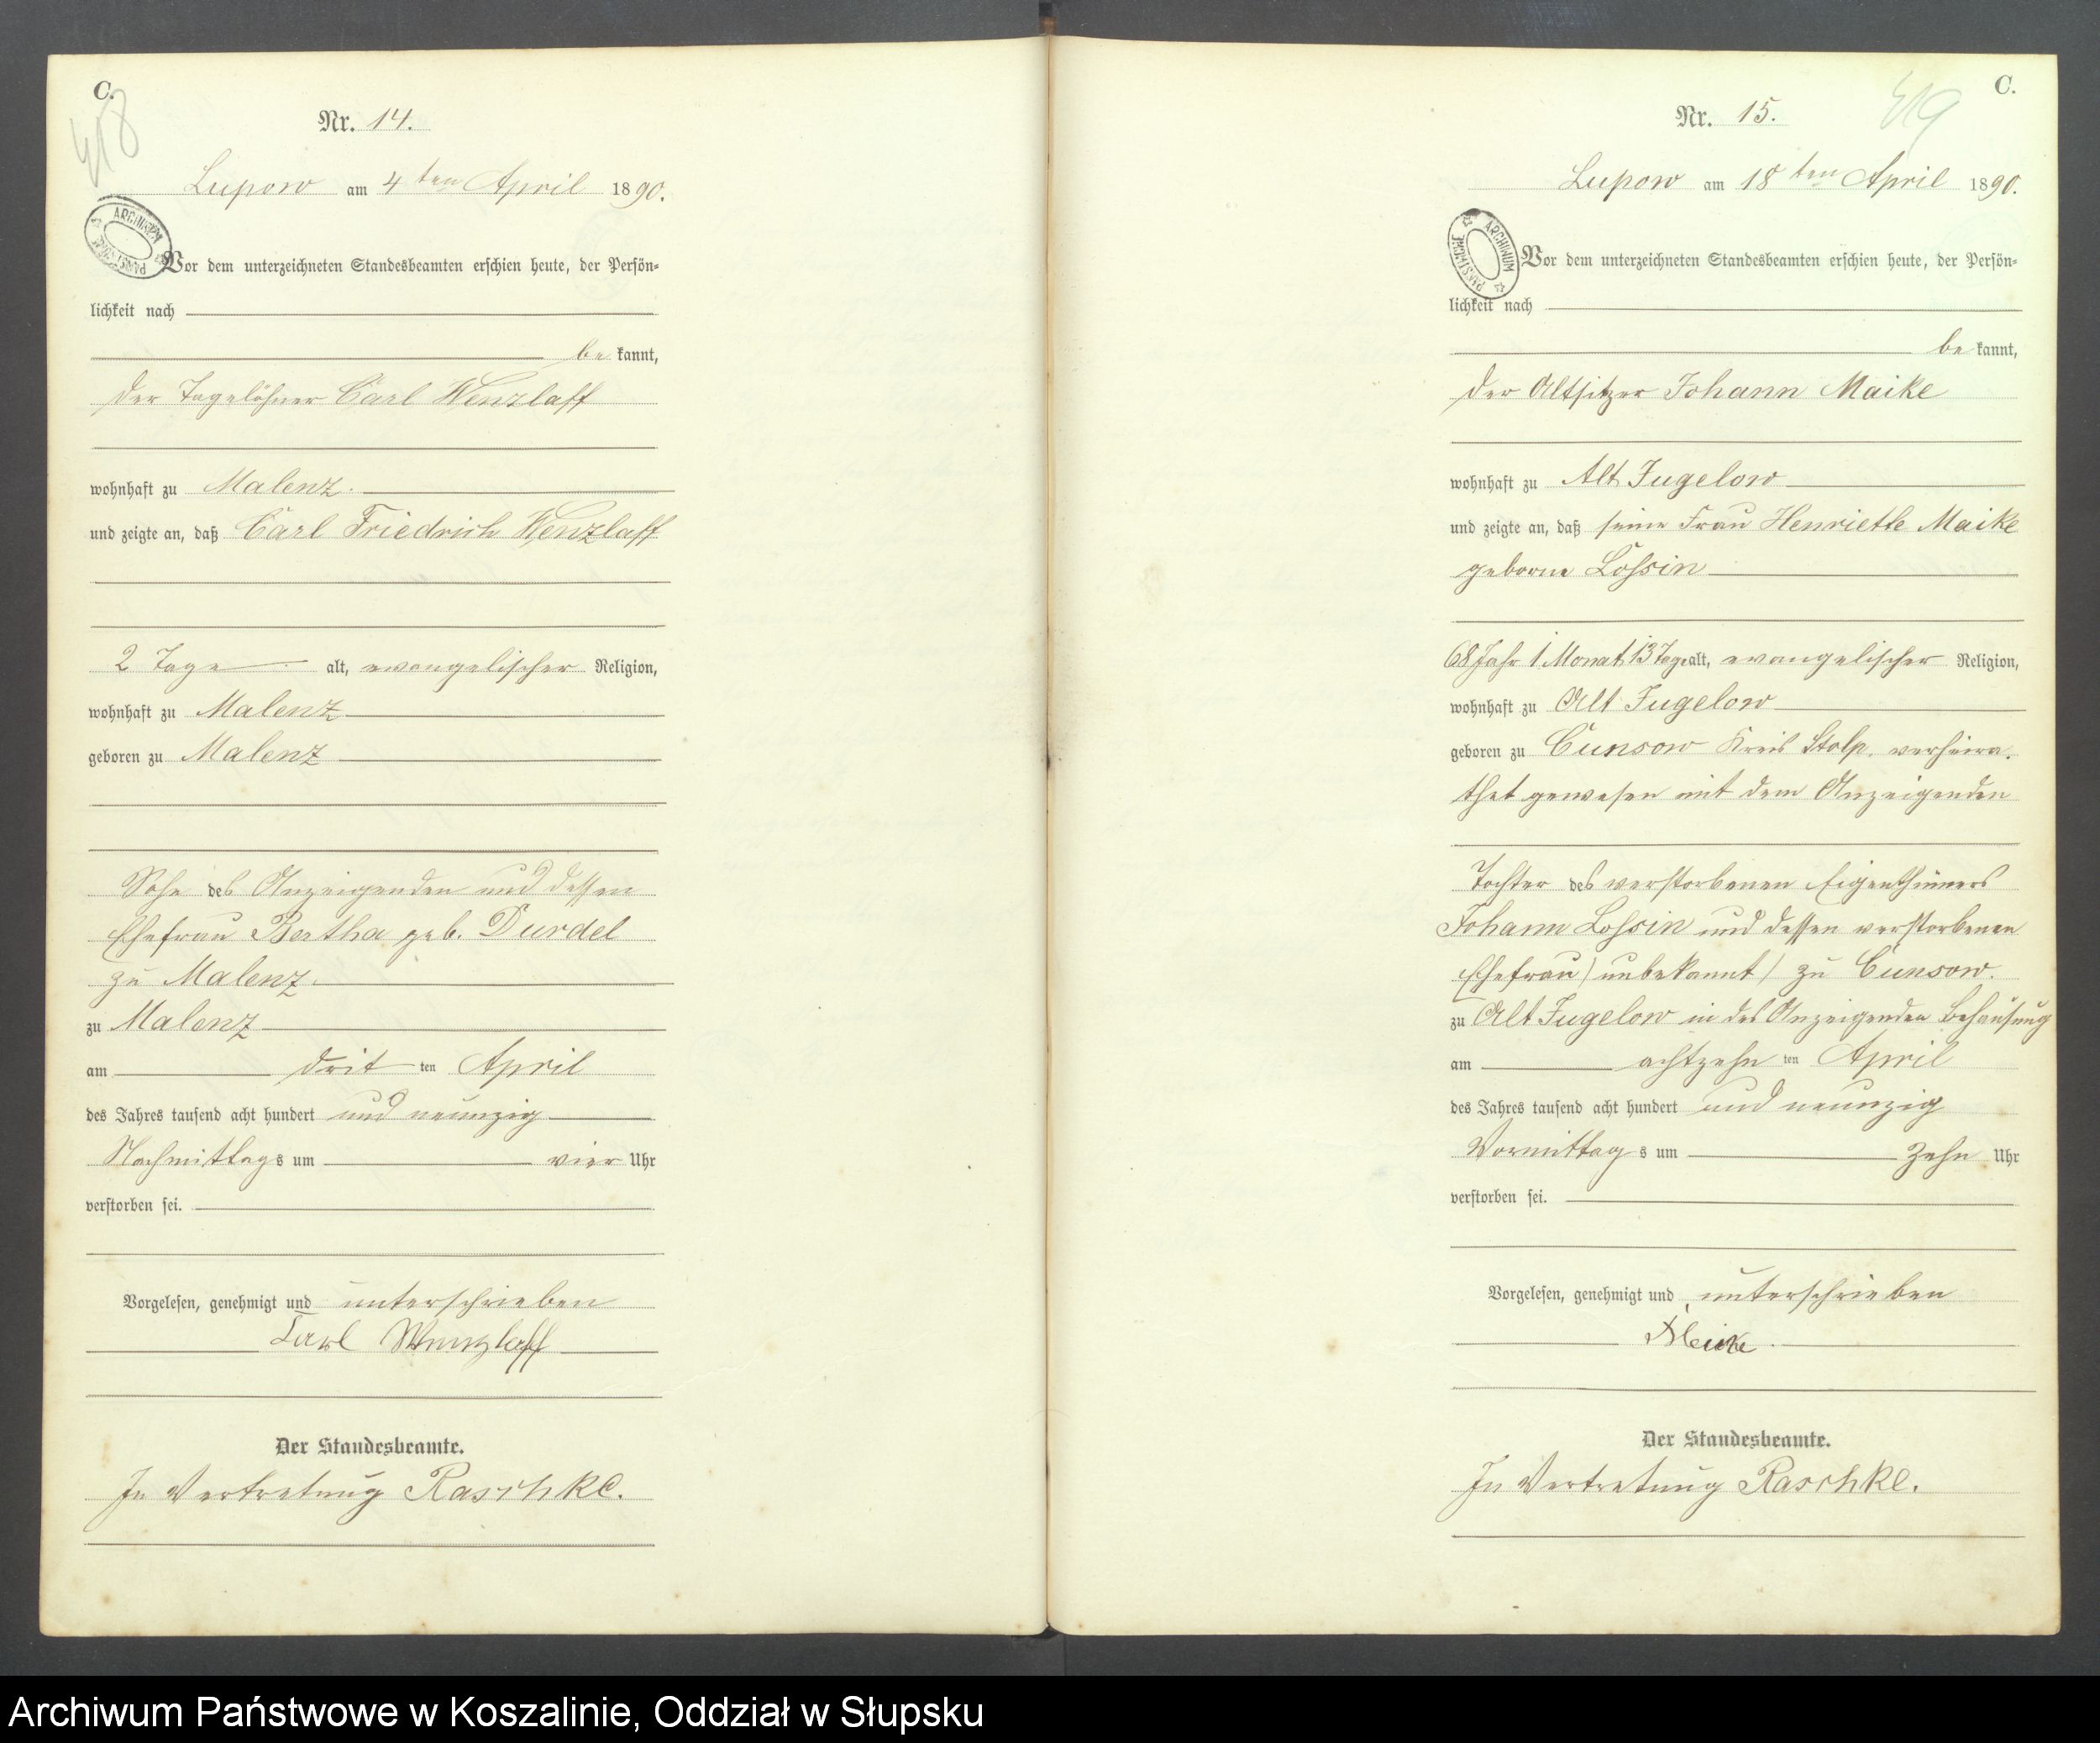 C.
418
Nr. 14.
Lupow am 4 ten April 1890.
ARCHIWUM PAŃSTWOWE
Vor dem unterzeichneten Standesbeamten erschien heute, der Persön-
lichkeit nach
be kannt,
der Tagelöhner Carl Wenzlaff
wohnhaft zu Malenz.
und zeigte an, daß Carl Friedrich Wenzlaff
2 Tage alt, evangelischer Religion,
wohnhaft zu Malenz
geboren zu Malenz
Sohn des Anzeigenden und dessen
Ehefrau Bertha geb. Durdel
zu Malenz.
zu Malenz
am drit ten April
des Jahres tausend acht hundert und neunzig
Nachmittags um vier Uhr
verstorben sei.
Vorgelesen, genehmigt und unterschrieben
Carl Wenzlaff
Der Standesbeamte.
In Vertretung Raschke.
C.
419
Nr. 15.
Lupow am 18 ten April 1890.
ARCHIWUM PAŃSTWOWE
Vor dem unterzeichneten Standesbeamten erschien heute, der Persön-
lichkeit nach
be kannt,
der Altsitzer Johann Maike
wohnhaft zu Alt Jugelow
und zeigte an, daß seine Frau Henriette Maike
geborne Lossin
68 Jahr 1 Monat 13 Tage alt, evangelischer Religion,
wohnhaft zu Alt Jugelow
geboren zu Cunsow Kreis Stolp, verheira-
thet gewesen mit dem Anzeigenden
Tochter des verstorbenen Eigenthümers
Johann Lossin und dessen verstorbenen
Ehefrau /unbekannt/ zu Cunsow.
zu Alt Jugelow in des Anzeigenden Behausung
am achtzehn ten April
des Jahres tausend acht hundert und neunzig
Vormittags um zehn Uhr
verstorben sei.
Vorgelesen, genehmigt und unterschrieben
Meike.
Der Standesbeamte.
In Vertretung Raschke.
Archiwum Państwowe w Koszalinie, Oddział w Słupsku